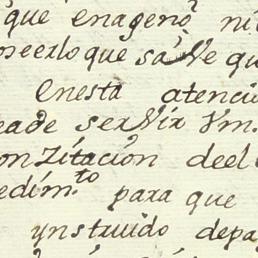 que enageno, ni
oseerlo que sa, Ve qu
Enesta atencio
eade serVir Vm.
onZitacion deel
edim.to para que
ynstruido depa